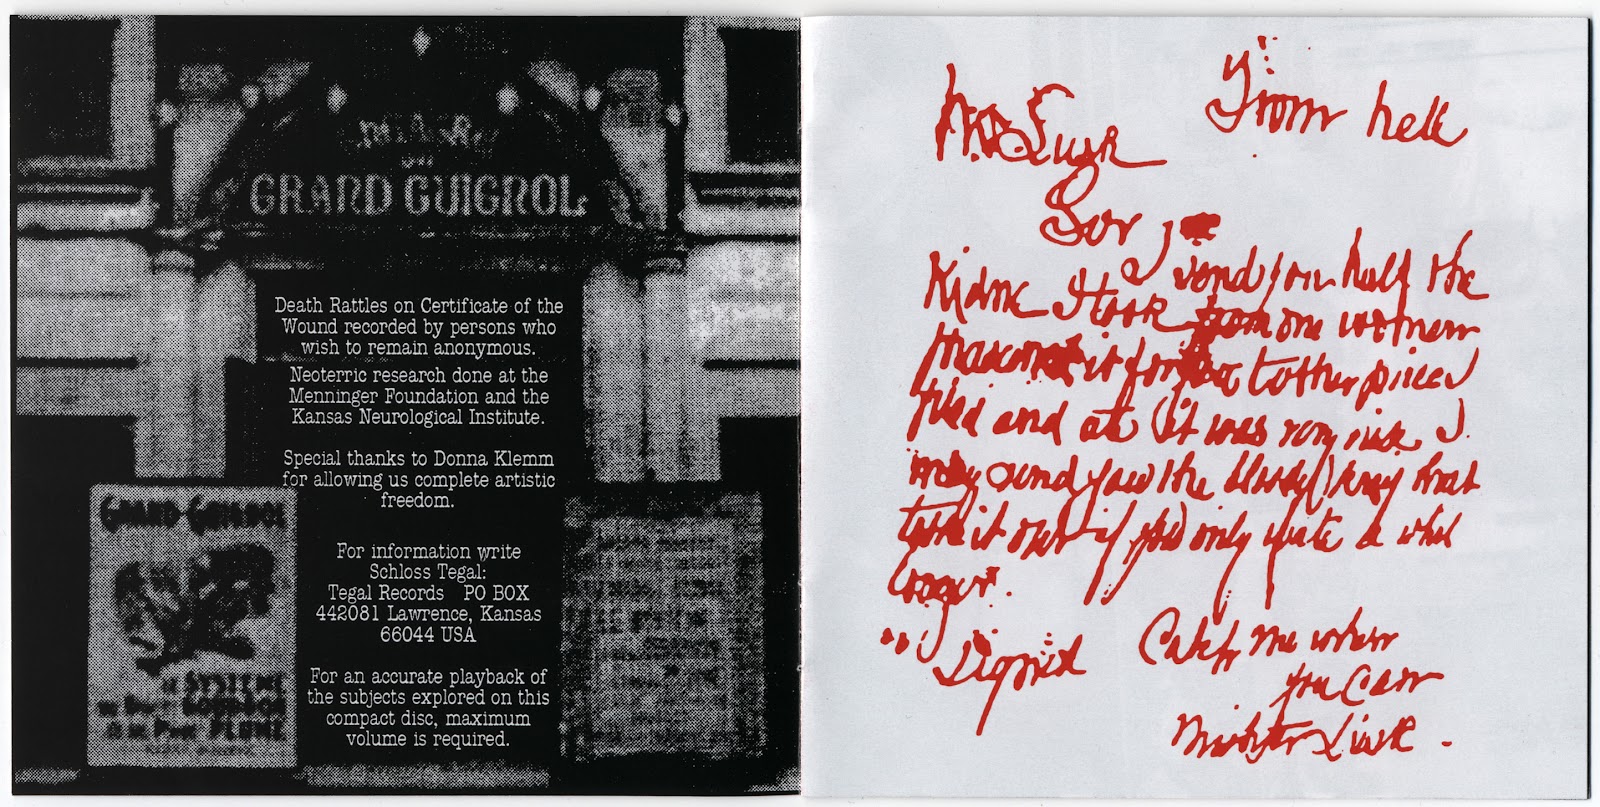 DU
GRAND GUIGNOL
Death Rattles on Certificate of the
Wound recorded by persons who
wish to remain anonymous.
Neoterric research done at the
Menninger Foundation and the
Kansas Neurological Institute.
Special thanks to Donna Klemm
for allowing us complete artistic
freedom.
For information write
Schloss Tegal:
Tegal Records PO BOX
442081 Lawrence, Kansas
66044 USA
For an accurate playback of
the subjects explored on this
compact disc, maximum
volume is required.
GRAND-GUIGNOL
SYSTEME
PLUME
From hell
Mr Lusk
Sor
I send you half the
Kidne I took from one women
prasarved it for you tother piece I
fried and ate it was very nise I
may send you the bloody knif that
took it out if you only wate a whil
longer.
Signed Catch me when
you Can
Mishter Lusk.